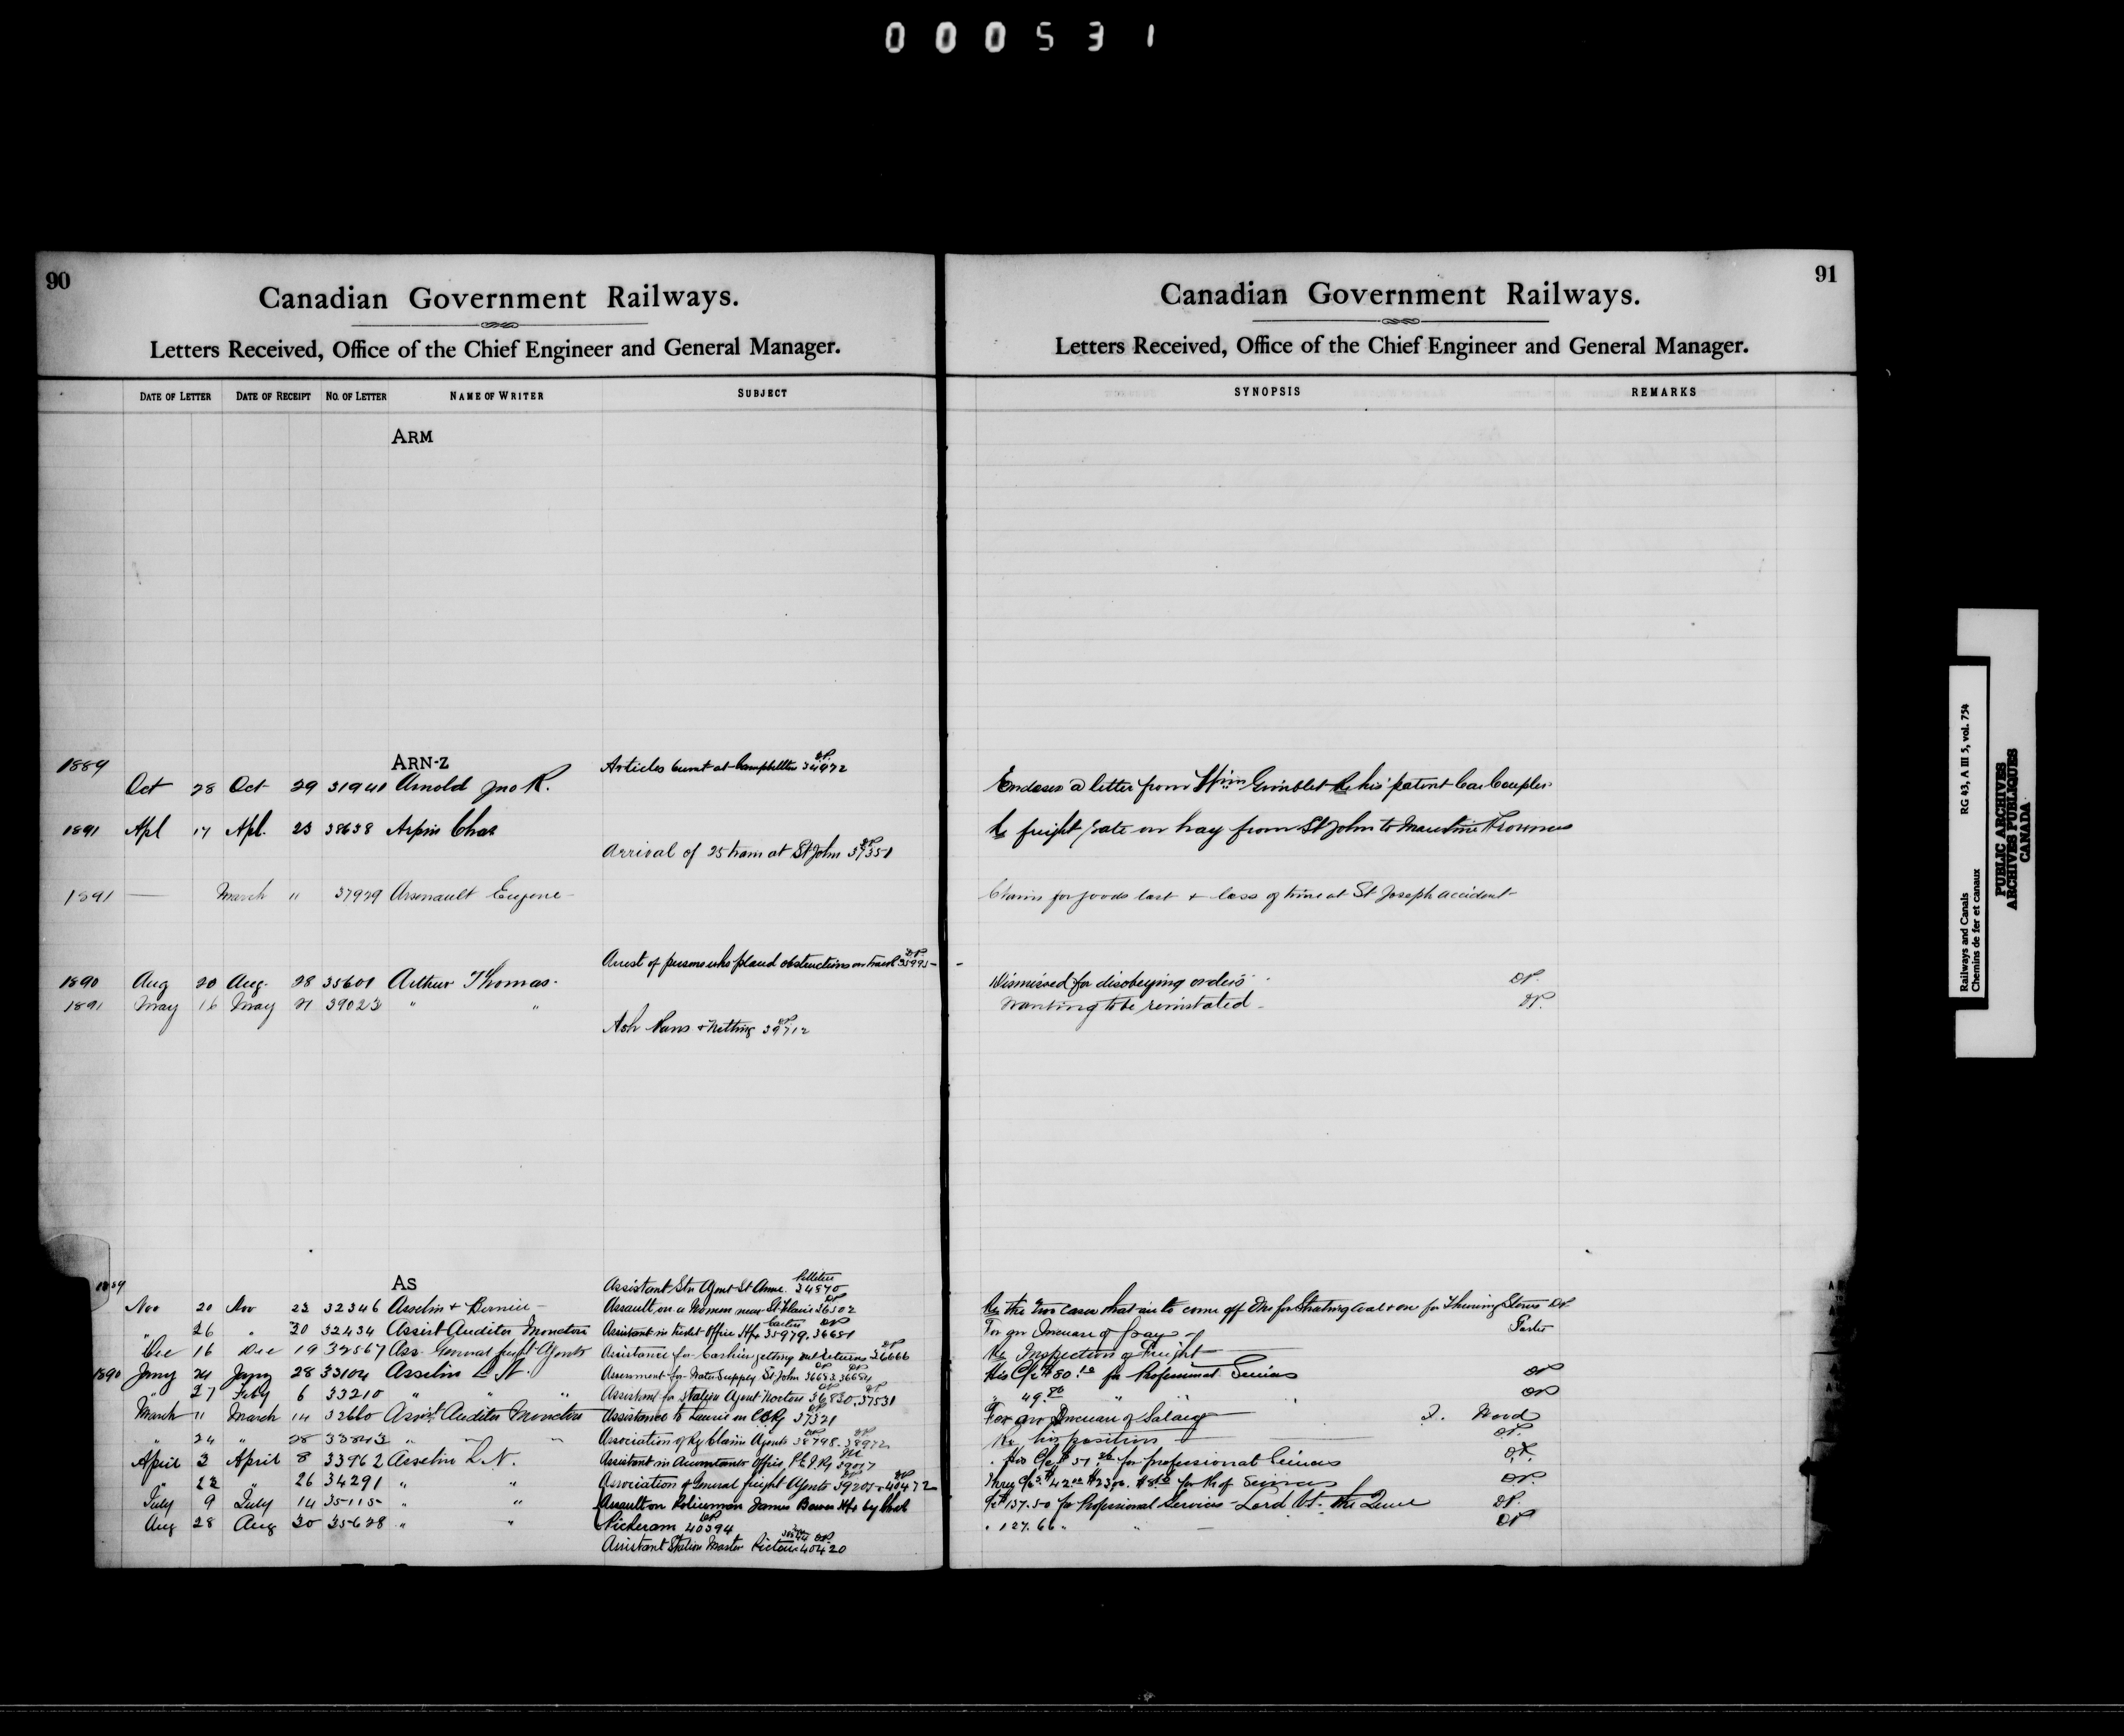 000531
90
Canadian Government Railways.
Letters Received, Office of the Chief Engineer and General Manager.
DATE OF LETTER DATE OF RECEIPT NO. OF LETTER NAME OF WRITER SUBJECT
ARM
ARN-Z
1889 Articles burnt at Campbellton 34972
Oct 28 Oct 29 31941 Arnold Jno R.
1891 Apl 17 Apl. 23 38638 Arpin Chas
Arrival of 25 train at St John 37351
1891 — March " 37979 Arsenault Eugene
Arrest of persons who placed obstructions on track 35995
1890 Aug 20 Aug. 28 35601 Arthur Thomas.
1891 May 16 May 21 39023 " "
Ash Pans & Netting 39712
AS
1889 Assistant Stn Agent St Anne. 34570
Nov 20 Nov 22 32346 Asselin & Bernier Assault on a Woman near St Flavie 36502
" 26 " 30 32434 Assist Auditor Moncton Assistant in ticket Office Hfx 35979. 36681
Dec 16 Dec 19 32567 Ass. General freight Agents Assistance for Cashier getting out returns 36666
1890 Jany 24 Jany 28 33104 Asselin L N. Assessment for Water Supply St John 36683. 36684
" 27 Feby 6 33210 " " " Assistant for station Agent Norton 36830. 37531
March 11 March 14 32660 Assist. Auditor Moncton Assistance to 37321
" 24 " 28 33843 " " " Association of Ry Claim Agents 38798. 38972
April 3 April 8 33962 Asselin L N. Assistant in Accountants Office, P.E.I. Ry 39017
" 22 " 26 34291 " " Association of General freight Agents 39205 & 40472
July 9 July 14 35115 " " Assault on Policeman James Bowes Hfx by
Aug 28 Aug 30 35628 " " Pickeram 40394
Assistant Station Master Pictou 40420
91
Canadian Government Railways.
Letters Received, Office of the Chief Engineer and General Manager.
SYNOPSIS REMARKS
Encloses a letter from Wm Grimblet Re his patent Car Coupler
Re freight rate on hay from St John to Maritime Provinces
Claim for goods lost & loss of time at St Joseph accident
Dismissed for disobeying orders
Wanting to be reinstated
Re the two cases that are to come off One for Stealing coal & one for Throwing Stones
For an Increase of pay
Re Inspection of Freight
His C/c $80 for Professional Services
" 49
For an Increase of Salary Wood
Re his position
His C/c $51 for professional Services
Three C/cs $42 for Professional Services
C/c $137.50 for Professional Services Lord vs. the Queen
" 127.66 "
Railways and Canals RG 43, A III 5, vol. 754
Chemins de fer et canaux
PUBLIC ARCHIVES
ARCHIVES PUBLIQUES
CANADA